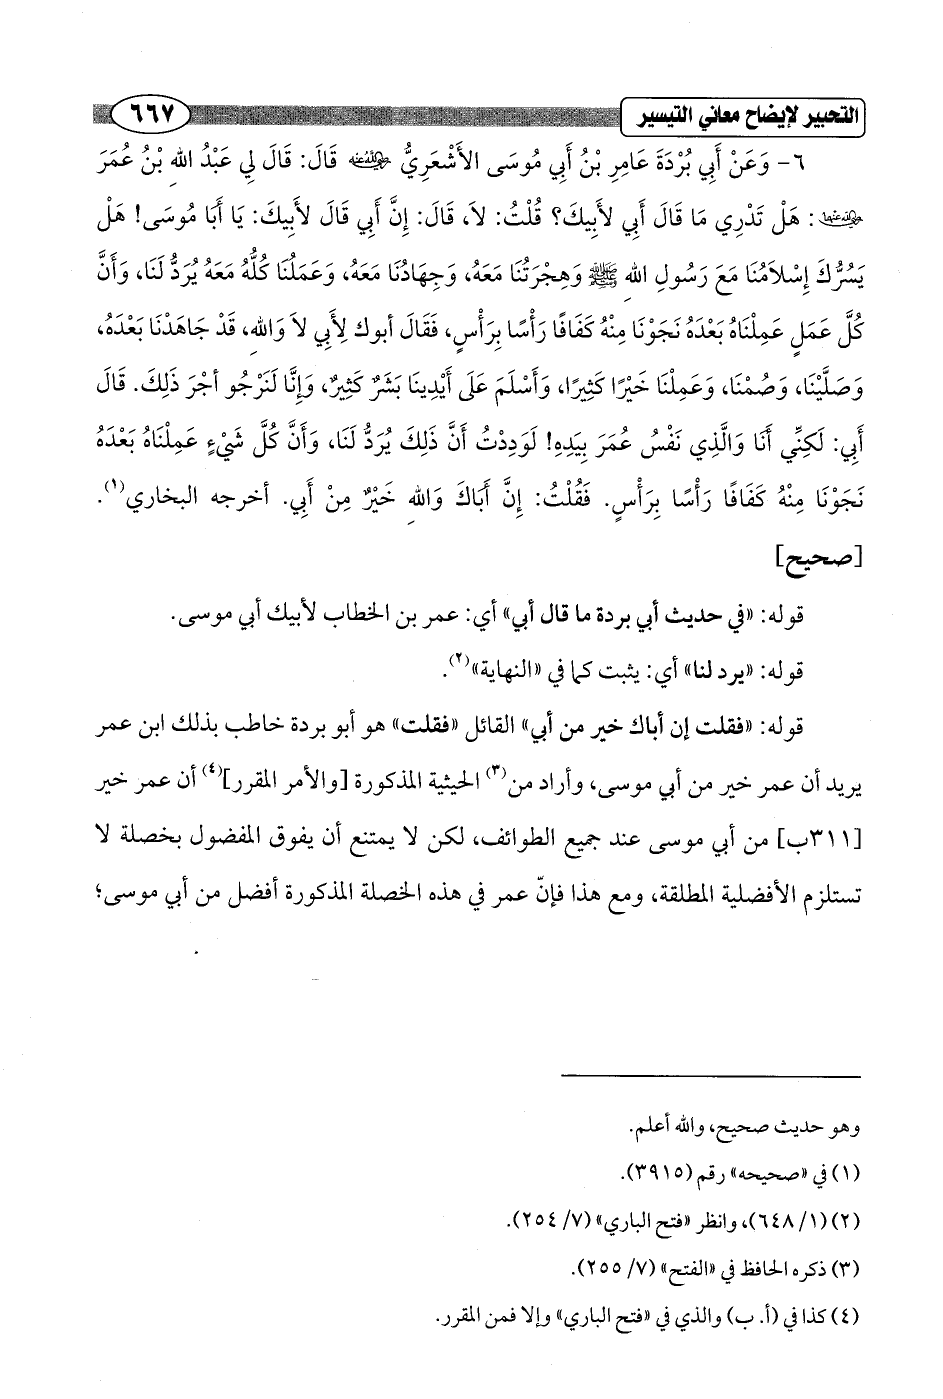 التحبير لإيضاح معاني التيسير ٦٦٧
٦- وَعَنْ أَبِي بُرْدَةَ عَامِرِ بْنُ أَبِي مُوسَى الأَشْعَرِيُّ رضي الله عنه قَالَ: قَالَ لِي عَبْدُ اللهِ بْنُ عُمَرَ
رضي الله عنهما: هَلْ تَدْرِي مَا قَالَ أَبِي لأَبِيكَ؟ قُلْتُ: لاَ، قَالَ: إِنَّ أَبِي قَالَ لأَبِيكَ: يَا أَبَا مُوسَى! هَلْ
يَسُرُّكَ إِسْلاَمُنَا مَعَ رَسُولِ اللهِ ﷺ وَهِجْرَتُنَا مَعَهُ، وَجِهَادُنَا مَعَهُ، وَعَمَلُنَا كُلُّهُ مَعَهُ يُرَدُّ لَنَا، وَأَنَّ
كُلَّ عَمَلٍ عَمِلْنَاهُ بَعْدَهُ نَجَوْنَا مِنْهُ كَفَافًا رَأْسًا بِرَأْسٍ، فَقَالَ أبوك لِأَبِي لاَ وَاللهِ، قَدْ جَاهَدْنَا بَعْدَهُ،
وَصَلَّيْنَا، وَصُمْنَا، وَعَمِلْنَا خَيْرًا كَثِيرًا، وَأَسْلَمَ عَلَى أَيْدِينَا بَشَرٌ كَثِيرٌ، وَإِنَّا لَنَرْجُو أجْرَ ذَلِكَ. قَالَ
أَبِي: لَكِنِّي أَنَا وَالَّذِي نَفْسُ عُمَرَ بِيَدِهِ! لَوَدِدْتُ أَنَّ ذَلِكَ يُرَدُّ لَنَا، وَأَنَّ كُلَّ شَيْءٍ عَمِلْنَاهُ بَعْدَهُ
نَجَوْنَا مِنْهُ كَفَافًا رَأْسًا بِرَأْسٍ. فَقُلْتُ: إِنَّ أَبَاكَ وَاللهِ خَيْرٌ مِنْ أَبِي. أخرجه البخاري(١).
[صحيح]
قوله: «في حديث أبي بردة ما قال أبي» أي: عمر بن الخطاب لأبيك أبي موسى.
قوله: «يرد لنا» أي: يثبت كما في «النهاية»(٢).
قوله: «فقلت إن أباك خير من أبي» القائل «فقلت» هو أبو بردة خاطب بذلك ابن عمر
يريد أن عمر خير من أبي موسى، وأراد من(٣) الحيثية المذكورة [والأمر المقرر](٤) أن عمر خير
[٣١١ب] من أبي موسى عند جميع الطوائف، لكن لا يمتنع أن يفوق المفضول بخصلة لا
تستلزم الأفضلية المطلقة، ومع هذا فإنّ عمر في هذه الخصلة المذكورة أفضل من أبي موسى؛
وهو حديث صحيح، والله أعلم.
(١) في «صحيحه» رقم (٣٩١٥).
(٢) (١/ ٦٤٨)، وانظر «فتح الباري» (٧/ ٢٥٤).
(٣) ذكره الحافظ في «الفتح» (٧/ ٢٥٥).
(٤) كذا في (أ. ب) والذي في «فتح الباري» وإلا فمن المقرر.